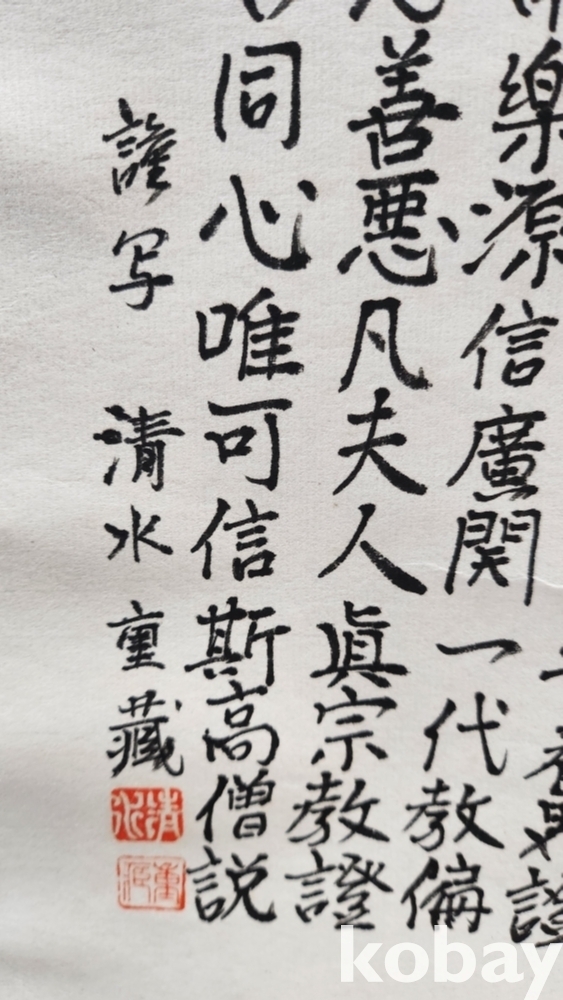 養界證
樂源信廣開一代教偏
善悪凡夫人真宗教證
同心唯可信斯高僧説
謹写 清水重藏
清水
kobay